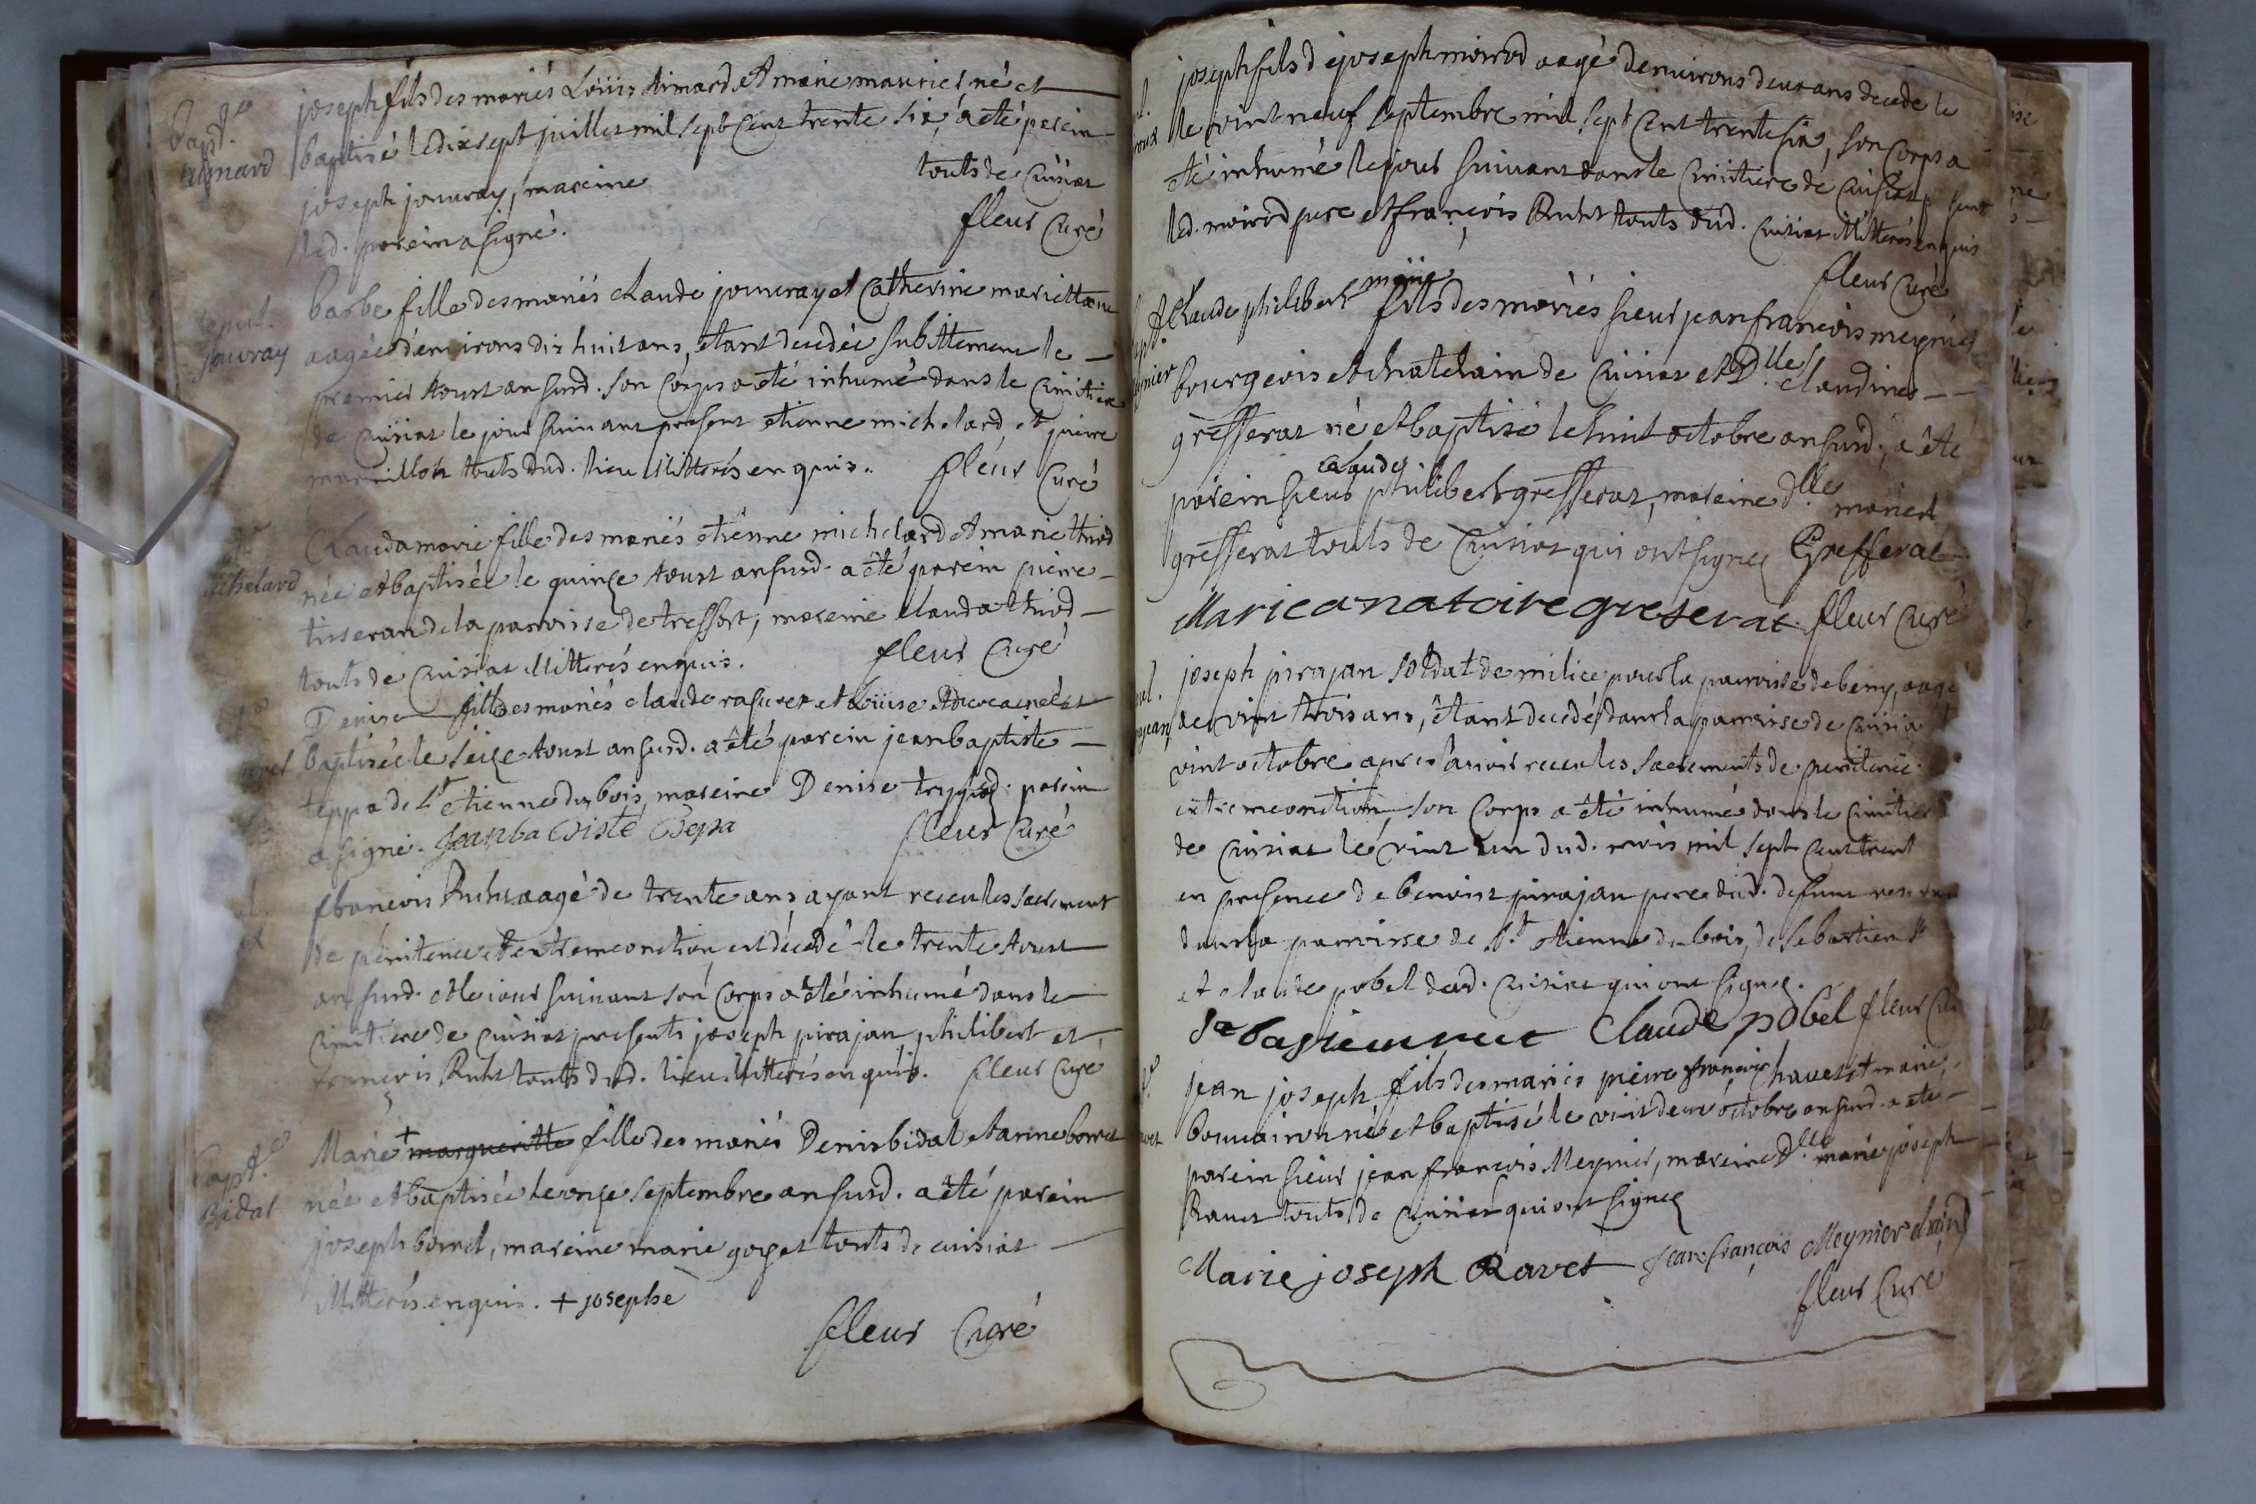 Bapt.e
Aymard
joseph fils des mariés Loüis Aimard et marie mauriet né et
baptisé le dix sept juillet mil sept cent trente six, a êté parein
joseph jouvray, mareine touts de Cuisiat
led. parein a signé. fleur Curé
sepul.
jouvray
barbe fille des mariés claude jouvray et Catherine mariettane
aagée d'environs dix huit ans, etant decedée subittement le
premier Aoust an susd. son corps a eté inhumé dans le Cimitiere
de Cuisiat le jour suivant present etienne michelard, et pierre
marillon touts dud. lieu illitterés enquis. fleur Curé
chelard
Claudamarie fille des mariés etienne michelard et marie thiod
née et baptisée le quinze Aoust an susd. a êté parein pierre
tisseran de la parroisse de treffort, mareine clauda thiod
touts de Cuisiat illitterés enquis. fleur Curé
Denise fille des mariés claude rasurer et Loüise née et
baptisée le seize Aoust an susd. a êté parein jean baptiste
teppa de St etienne du bois, mareine Denise parein
a signé. Jean ba tiste Tepa fleur Curé
francois Ruht aagé de trente ans, ayant receu les sacrement
de penitence et extremeonction, est decedé le trente Aoust
an susd. et le iour suivant son Corps a êté inhumé dans le
Cimitiere de Cuisiat presents joseph pirajan, philibert et
francois Ruht touts dud. lieu illitterés enquis. fleur Curé
Bapt.e
Bidat
Marie + margueritte fille des mariés Denis bidat et anne borrel
née et baptisée le onze septembre an susd. a êté parein
joseph borrel, mareine marie goyet touts de cuisiat
illitterés enquis. + josephe
fleur Curé
joseph fils de joseph moirod aagé d'environs deux ans decede le
le vint neuf septembre mil sept Cent trente six, son Corps a
eté inhumé le jour suivant dans le Cimitiere de Cuisiat p sent
led. moirod pere et francois Ruht touts dud. Cuisiat illitterés enquis
fleur Curé
Claude philibert marie fils des mariés sieur jean francois meynier
bourgeois et chatelain de Cuisiat et Dlle Claudine
grefferat né et baptisé le huit octobre an susd., a êté
parein sieur claude philibert grefferat, mareine Dlle marie
grefferat touts de Cuisiat qui ont signez Grefferat
Marie anatoire greferat. fleur Curé
joseph pirajan soldat de milice pour la parroisse de beny, aagé
de vint trois ans, êtant decedé dans la parroisse de Cuisia
vint octobre apres avoir receu les sacrements de penitence
extremeonction, son Corps a êté inhumé dans le Cimitiere
de Cuisiat le vint un dud. mois mil sept cent trent
en presence de benoist pirajan pere dud. defunt
dans la parroisse de St etienne du bois, de sebastien
et claude pobel dud. Cuisiat qui ont signez.
Claude pobel fleur Cu
jean joseph fils des mariés pierre francois havet et marie
né et baptisé le vint deux octobre an susd. a eté
parein sieur jean francois Meynier, mareine Dlle marie joseph
Ravet touts de Cuisiat qui ont signez
Marie joseph Ravet Jean françois Meynier
fleur Curé